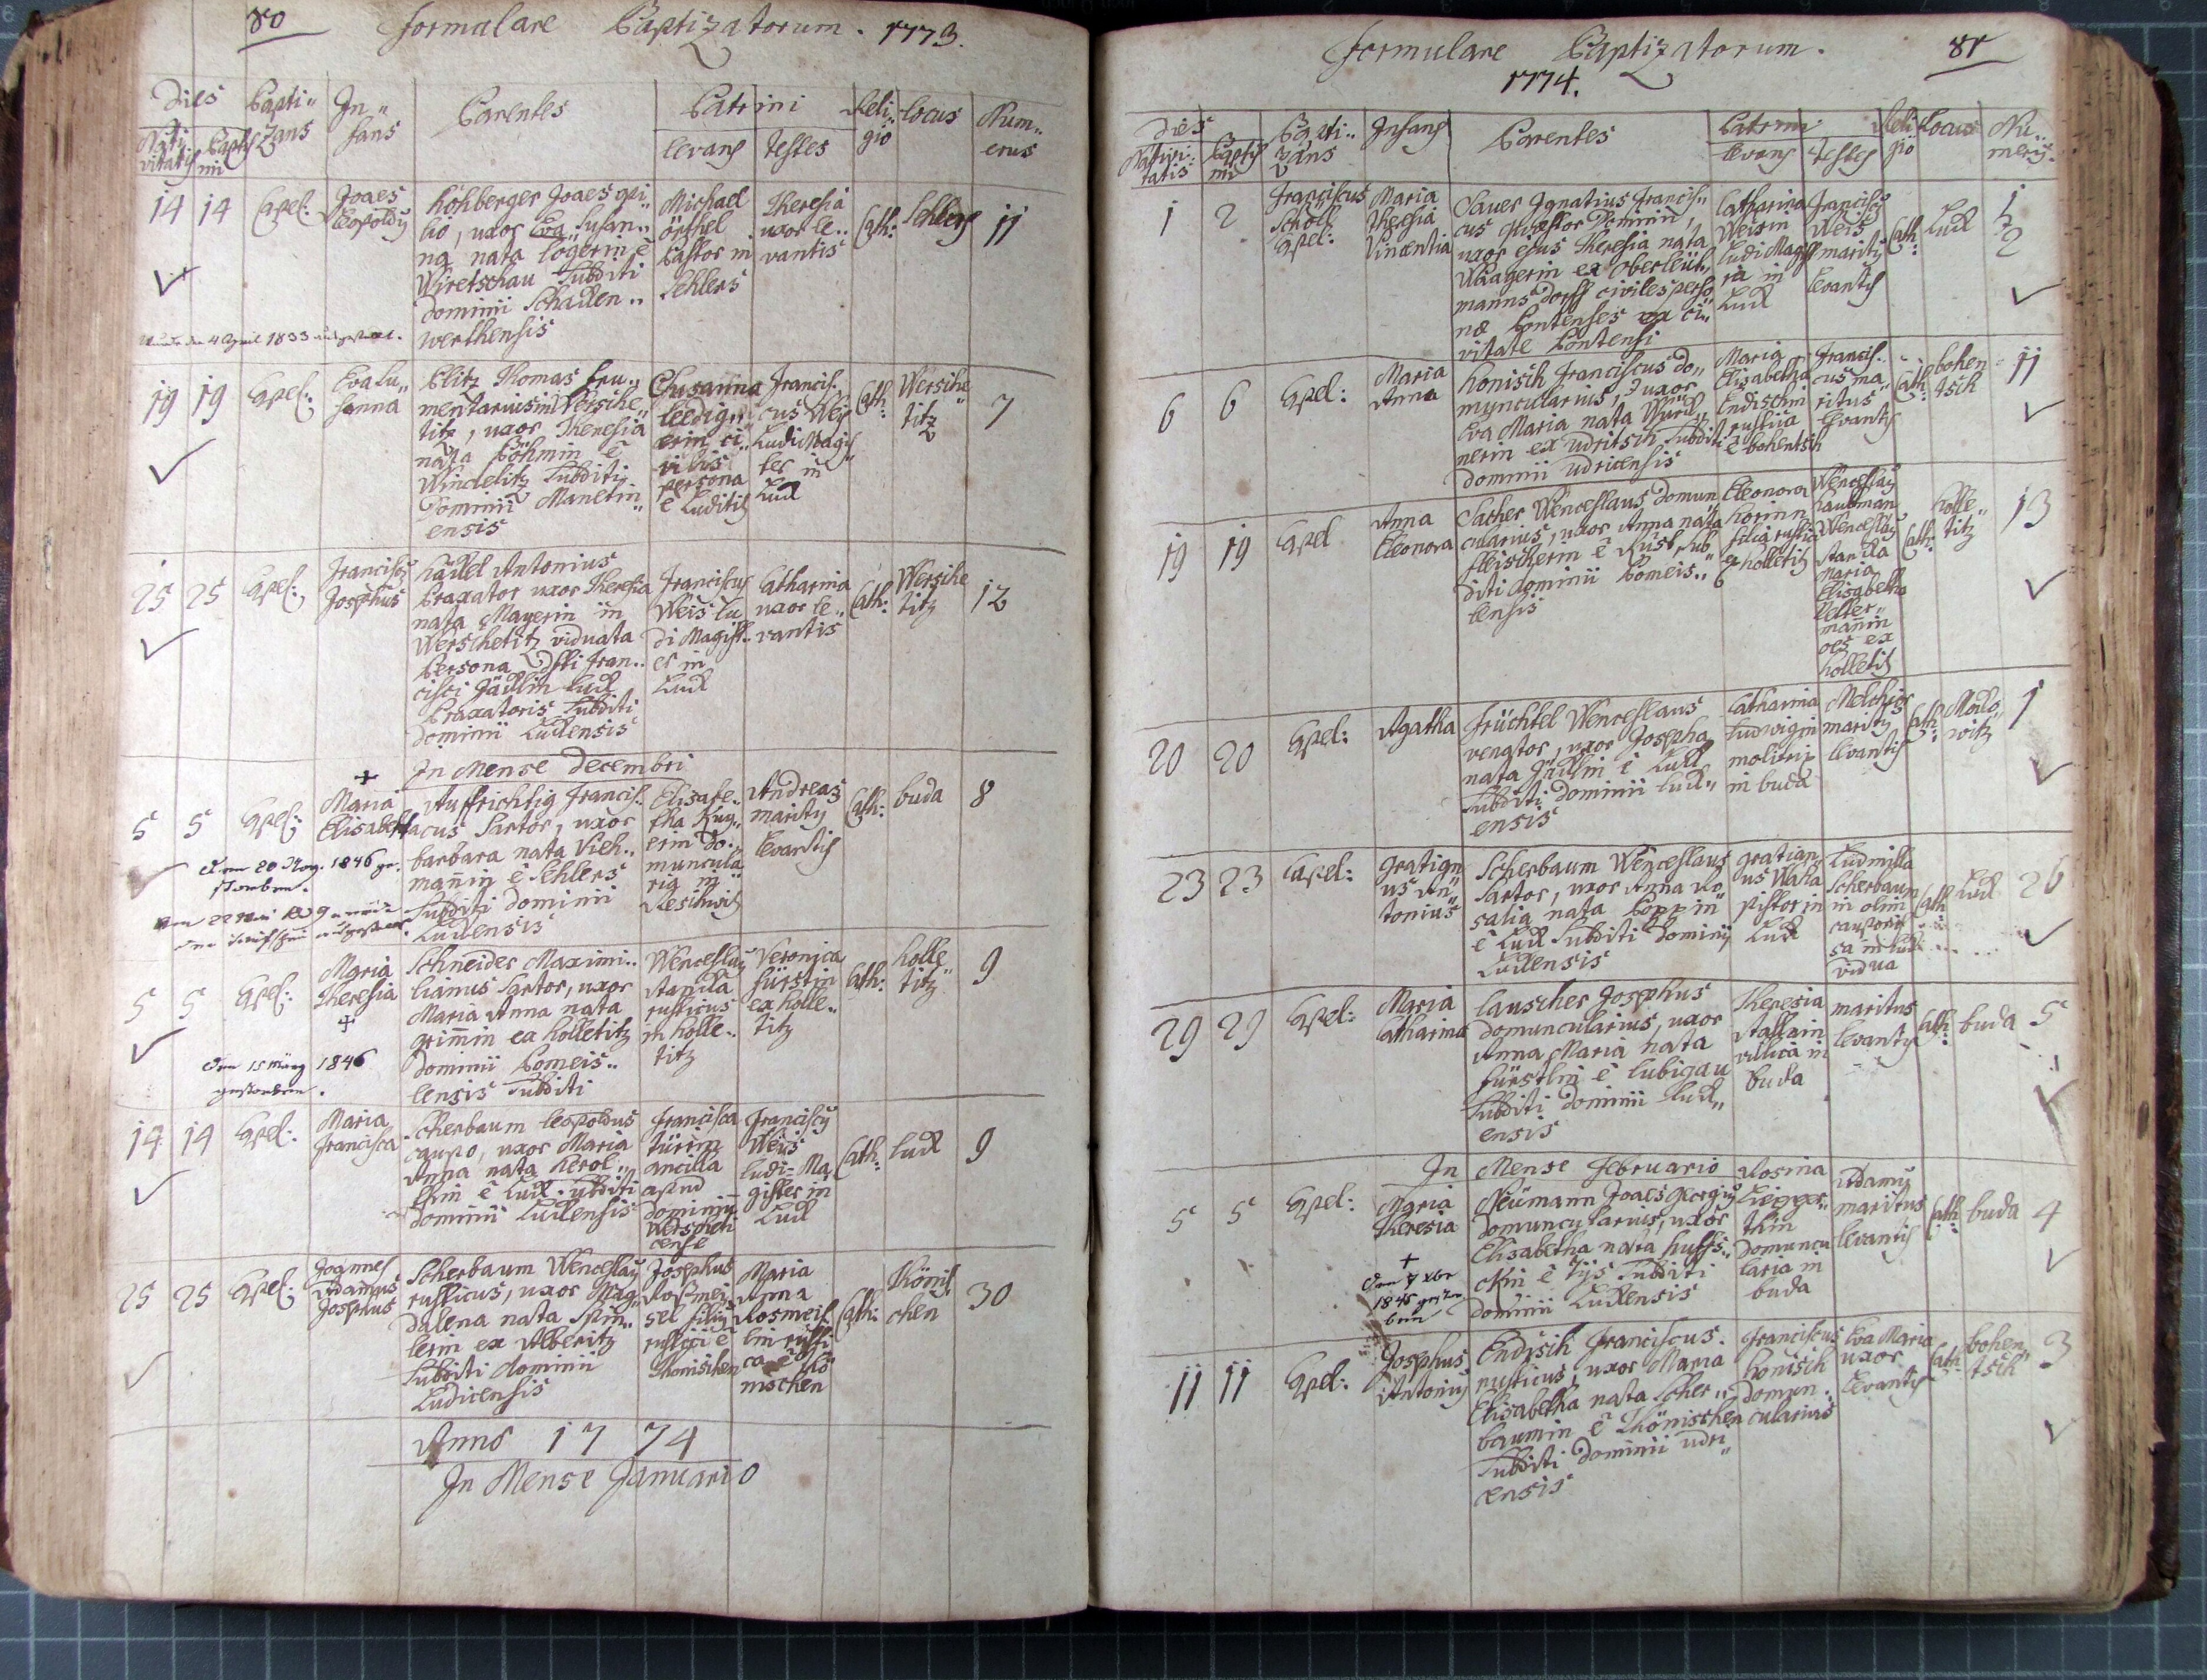 80 Formulare Baptizatorum. 1773.
Dies Bapti„ In„ Parentes Patrini Reli„ Locus Num„
Nati Baptis zans fans Levans Testes gio erus
vitatis mi
14 14 Capel: Joaes Leopoldy
Kohberger Joaes opi„
lio, uxor Eva Susan„
na nata Logerin è
Wiretschau Subditi
Dominii Schacken„
werthensis
Michael
örthel
Pastor in
Sehlers
Theresia
uxor le„
vantis
Cath: Sehlers 11
den 4 April 1833
19 19 Capel: Eva Su„
sanna
Plitz Thomas fru„
mentarius in Wersche„
titz, uxor Theresia
nata Böhmin è
Windelitz Subditi
Dominii Manetin„
ensis
Susanna
Leedig„
erin ci„
vilis
persona
è Luditis
Francis„
cus Weis
Ludi Magis
ter in
Lud
Cath: Wersche
titz 7
25 25 Capel: Franciscy
Josephus
Antonius
Braxator uxor Theresia
nata Mayerin in
Werschetitz viduata
Persona Dfti Fran„
cisci Jäcklin Lud
Braxatoris Subditi
Dominii Ludensis
Franciscus
Weis Lu
di Magist„
er in
Lud
Catharina
uxor le„
vantis
Cath: Wersche
titz 12
In Mense Decembri
5 5 Capel: +
Maria
Elisabeth
Auffrichtig Francis„
cus Sartor, uxor
barbara nata Vieh„
mañin è Sehlers
Subditi Dominii
Ludensis
Elisabe„
tha
erin do„
muncula
ria in
Reschwitz
Andreas
marity
levantis
Cath: buda 8
den 20 Aug. 1846 ge„
storben.
5 5 Capel: Maria
Theresia
+
Schneider Maximi„
lianus Sartor, uxor
Maria Anna nata
Grimin ex Kolletitz
Dominii Pomeis„
lensis Subditi
Wenceslay
Standa
rusticus
in Kolle„
titz
Veronica
Fürstin
ex Kolle„
titz
Cath: Kolle
titz 9
den 15 März 1846
gestorben.
14 14 Capel: Maria
Francisca
Scherbaum Leopoldus
caupo, uxor Maria
Anna nata Herol„
tin è Lud. Subditi
Dominii Ludensis
Francisca
Türin
ancilla
apud
Dominiu
Werscheti
cense
Franciscy
Weis
Ludi=Ma
gister in
Lud
Cath: Lud 9
25 25 Capel: Joannes
Adamus
Josephus
Scherbaum Wenceslay
rusticus, uxor Mag„
dalena nata Spin„
lerin ex Alberitz
Subditi Dominii
Ludicensis
Josephus
Rosmei„
sel filiy
rustici è
Thonischen
Maria
Anna
Rosmeis„
lin rusti
ca è Thö
nischen
Cath: Thönis„
chen 30
Anno 1774
In Mense Januario
Formulare Baptizatorum. 81
1774.
Dies Bapti„ Infans Parentes Patrini Reli Locus Nu„
Nativi„ Baptis zans Levans Testes gio merus
tatis mi
1 2 Franciscus
Scholl
Capel: Maria
Theresia
Vincentia
Sauer Ignatius Francis„
cus Quæstor Dominii,
uxor ejus Theresia nata
Waagerin ex Oberleüt„
manns Dorff civiles perso
næ Pontenses ex ci„
vitate Pontensi
Catharina
Weisin
Ludi Magist
ria in
Lud
Franciscy
Weis
marity
levantis
Cath: Lud 1
2
6 6 Capel: Maria
Anna
Konisch Franciscus do„
muncularius, uxor
Eva Maria nata
nerin ex Udritsch Subditi
Dominii Udricensis
Maria
Elisabetha
Endischin
rustica
è bohentsch
Francis„
cus ma„
ritus
levantis
Cath: bohen
tsch 11
19 19 Capel Anna
Eleonora
Sacher Wenceslaus Domun
cularius, uxor Anna nata
Fleischerin è Rust, Sub„
diti Dominii Pomeis„
lensis
Eleonora
Korinn
filia rustici
ex Kolletitz
Wenceslay
Kaufman
Wenceslay
Standa
Maria
Elisabetha
Keller„
mañin
oes ex
Kolletitz
Cath: Kolle„
titz 13
20 20 Capel: Agatha
Früchtel Wenceslaus
venator, uxor Josepha
nata Jäcklin è Lud
Subditi Dominii Lud„
ensis
Catharina
Ludwigin
molitrix
in buda
Melchior
marity
levantis
Cath: Moko
witz 1
23 23 Capel: Gratian
us An„
tonius
Scherbaum Wenceslaus
Sartor, uxor Anna Ro
salia nata Poppin
è Lud Subditi Dominii
Ludensis
Gratian
us Waha
Pistor in
Lud
Ludmilla
Scherbaum
in olim
cauponis
sa in Lud
vidua
Cath: Lud 26
29 29 Capel: Maria
Catharina
Lauscher Josephus
Domuncularius, uxor
Anna Maria nata
Fürstlin è Lubigau
Subditi Dominii Lud„
ensis
Theresia
villica in
buda
maritus
levantis
Cath: buda 5
In Mense Februario
5 5 Capel: Maria
Theresia
+
den 7 xbr
1845 gestor
ben
Neümann Joaes Georgiy
Domuncularius, uxor
Elisabetha nata
è Tijs Subditi
Dominii Ludensis
Rosina
thin
Domuncu
laria in
buda
Adamy
maritus
levantis
Cath: buda 4
11 11 Capel: Josephus
Antoniy
Endisch Franciscus.
rusticus, uxor Maria
Elisabetha nata Scher„
baumin è Thönischen
Subditi Dominii Udri„
censis
Franciscus
Konisch
Domun„
cularius
Eva Maria
uxor
levantis
Cath: bohen„
tsch 3